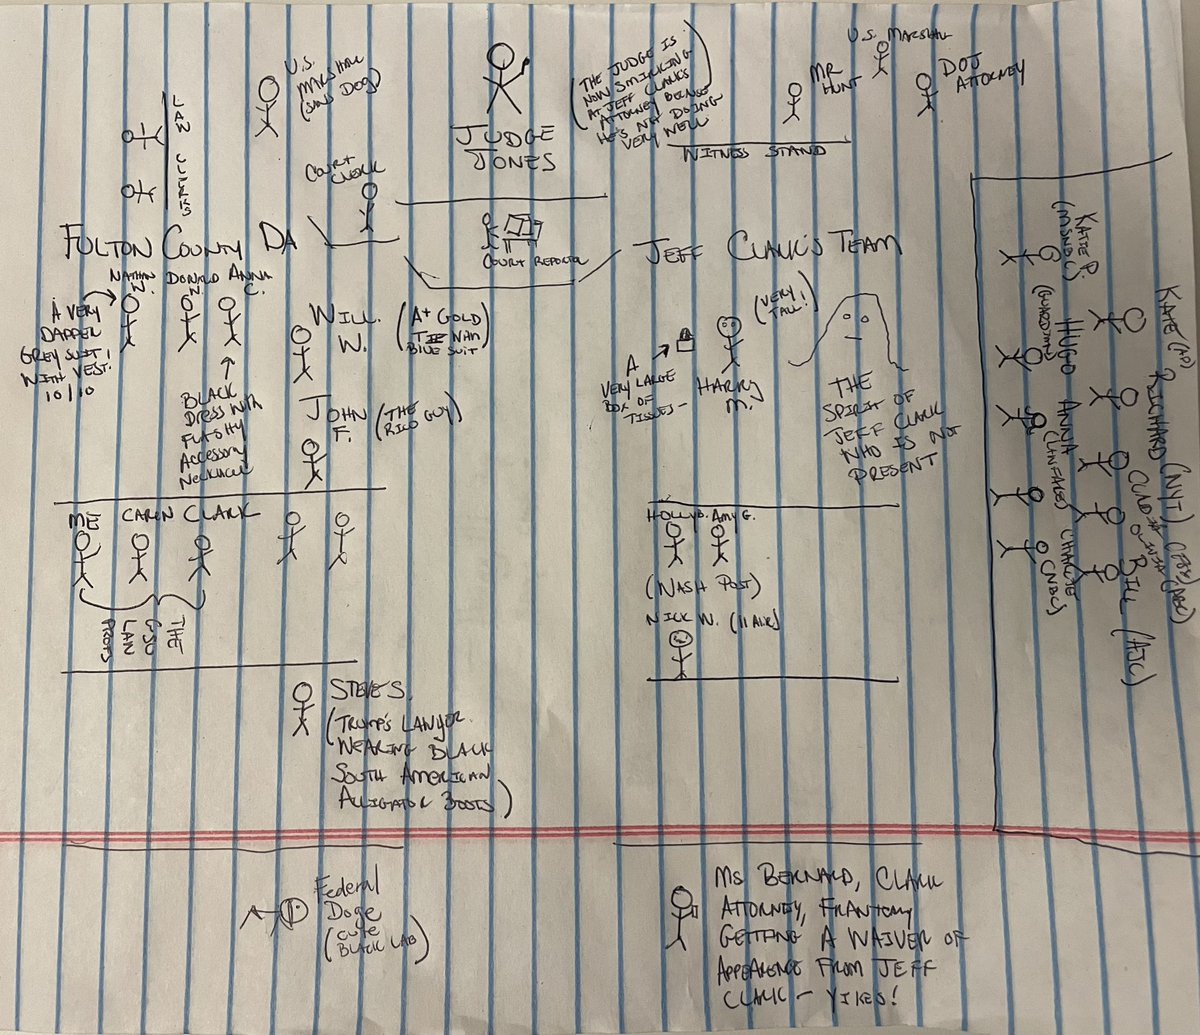 U.S.
MARSHAL
(SANS DOG)
LAW CLERKS
COURT
CLERK
JUDGE
JONES
(THE JUDGE IS
NOW SMIRKING
AT JEFF CLARK'S
ATTORNEY BECAUSE
HE'S NOT DOING
VERY WELL)
MR
HUNT
U.S. MARSHAL
DOJ
ATTORNEY
WITNESS STAND
COURT REPORTER
FULTON COUNTY DA
NATHAN
W.
DONALD
W.
ANNA
C.
A VERY
DAPPER
GREY SUIT!
WITH VEST!
10/10
WILL
W.
(A+ GOLD
TIE WITH
BLUE SUIT)
BLACK
DRESS WITH
Accessory
Necklace
JOHN
F.
(THE
RICO GUY)
JEFF CLARK'S TEAM
A
VERY LARGE
BOX OF
TISSUES
HARRY
M.
(VERY
TALL!)
THE
SPIRIT OF
JEFF CLARK
WHO IS NOT
PRESENT
ME
CAREN
CLARK
THE
GSU
LAW
PROFS
HOLLY B.
AMY G.
(WASH POST)
NICK W. (11 ALIVE)
KATIE P.
(MSNBC)
HUGO
(GUARDIAN)
ANNA
(LAWFARE)
CHARLIE
(NBC)
KATE (AP)
RICHARD (NYT)
OLIVIA (ABC)
BILL (AJC)
STEVE S.
(TRUMP'S LAWYER
WEARING BLACK
SOUTH AMERICAN
ALLIGATOR BOOTS)
Federal
Doge
(CUTE
BLACK LAB)
MS BERNARD, CLARK
ATTORNEY, FRANTICALLY
GETTING A WAIVER OF
APPEARENCE FROM JEFF
CLARK - YIKES!